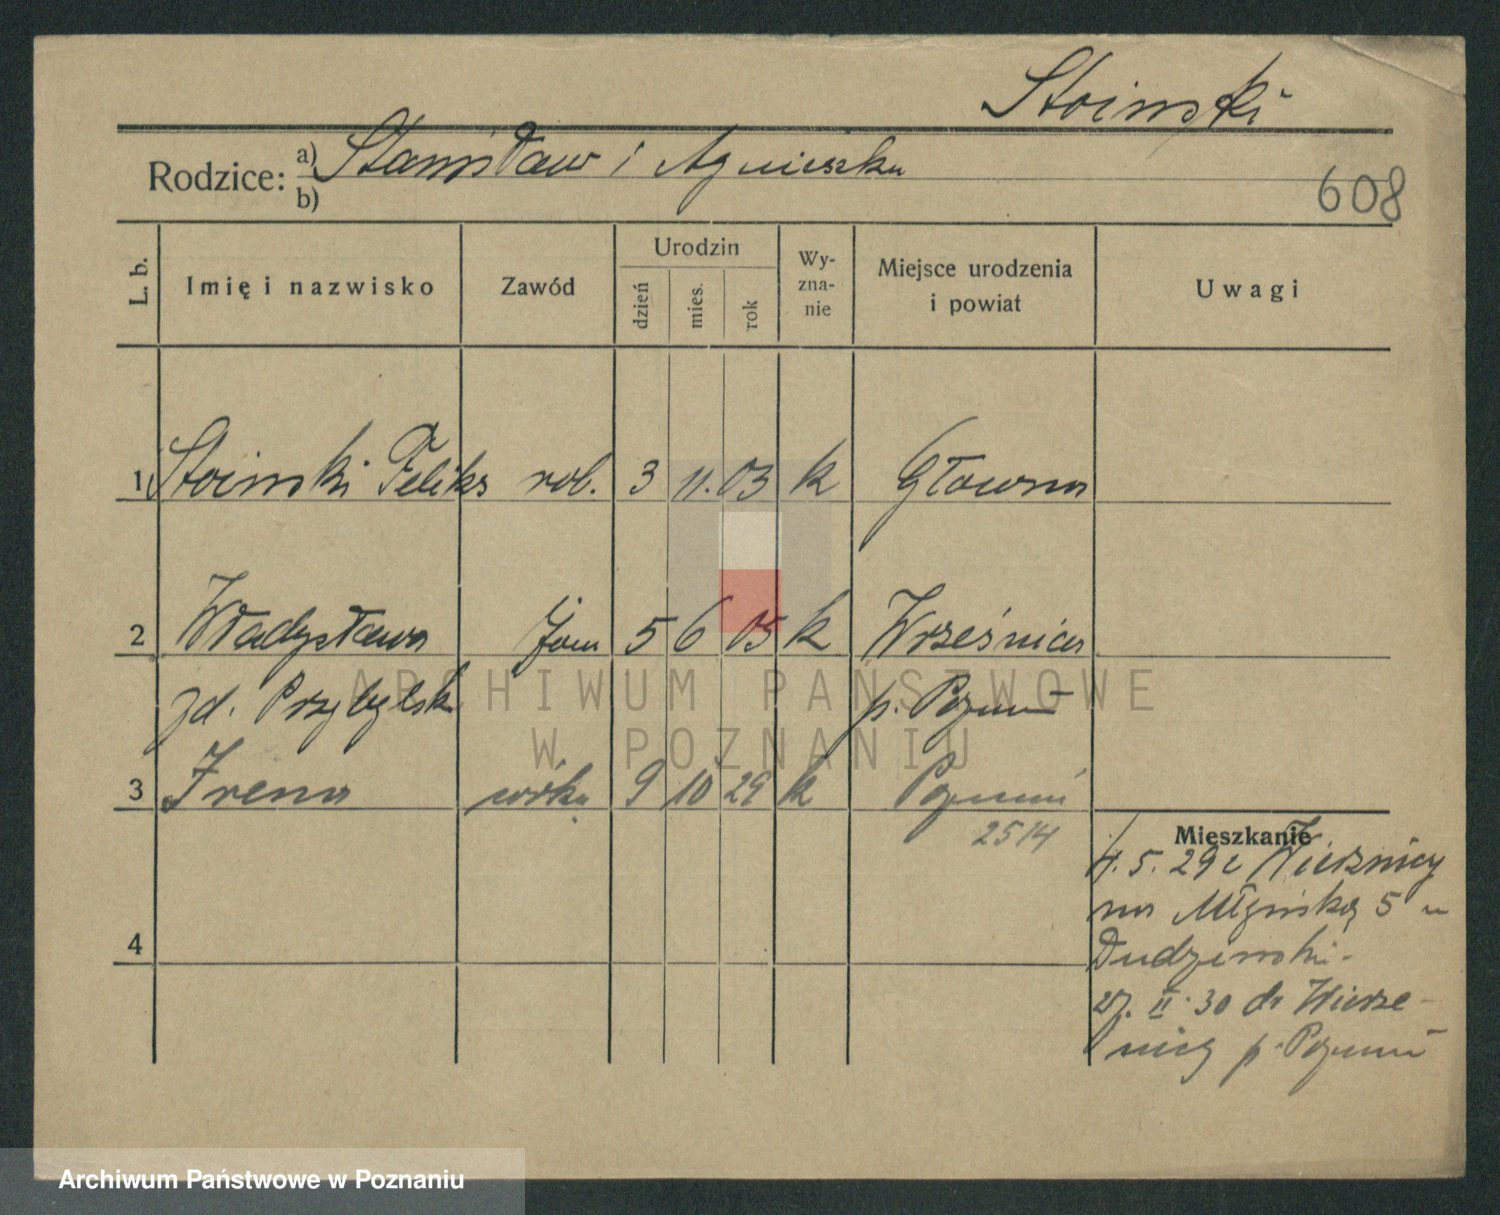 Stoinski
Rodzice: a) Stanisław i Agnieszka
b)
608
L. b.
Imię i nazwisko
Zawód
Urodzin
dzień
mies.
rok
Wy-
zna-
nie
Miejsce urodzenia
i powiat
Uwagi
1 Stoinski Feliks rob. 3 11. 03 k Głowna
2 Władysława żona 5 6 05 k Wrześnica
zd. Przybylsk p. Poznań
3 Irena córka 9 10 29 k Poznań
2514
4
Mieszkanie
4. 5. 29 z Wierznicy
na Młyńską 5 u
Dudzinski-
27. II. 30 do Wierze-
nicy p. Poznań
ARCHIWUM PAŃSTWOWE
W POZNANIU
Archiwum Państwowe w Poznaniu